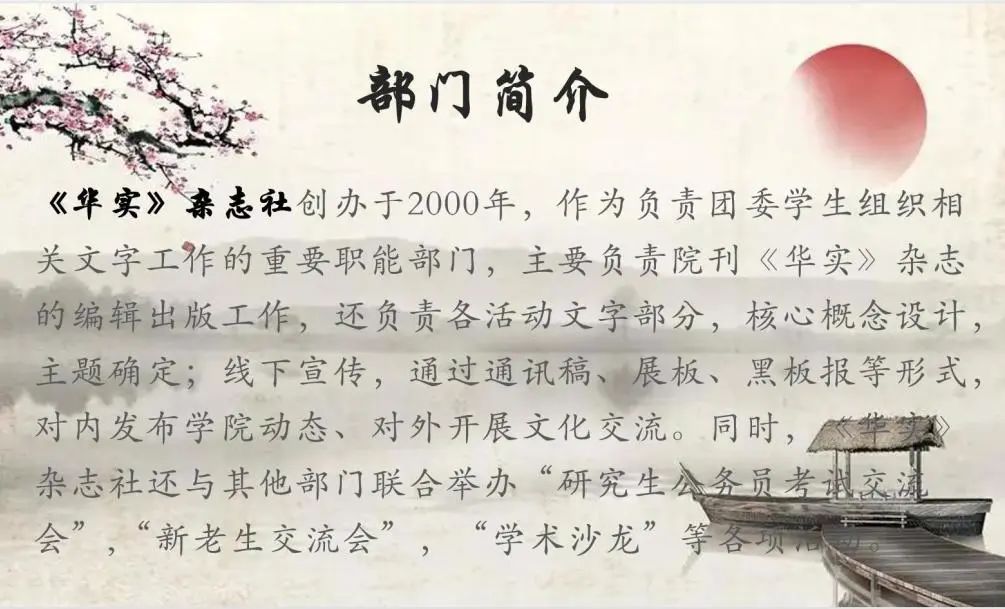 部门简介
《华实》杂志社创办于2000年，作为负责团委学生组织相
关文字工作的重要职能部门，主要负责院刊《华实》杂志
的编辑出版工作，还负责各活动文字部分，核心概念设计，
主题确定；线下宣传，通过通讯稿、展板、黑板报等形式，
对内发布学院动态、对外开展文化交流。同时，《华实》
杂志社还与其他部门联合举办“研究生公务员考试交流
会”，“新老生交流会”，“学术沙龙”等各项活动。